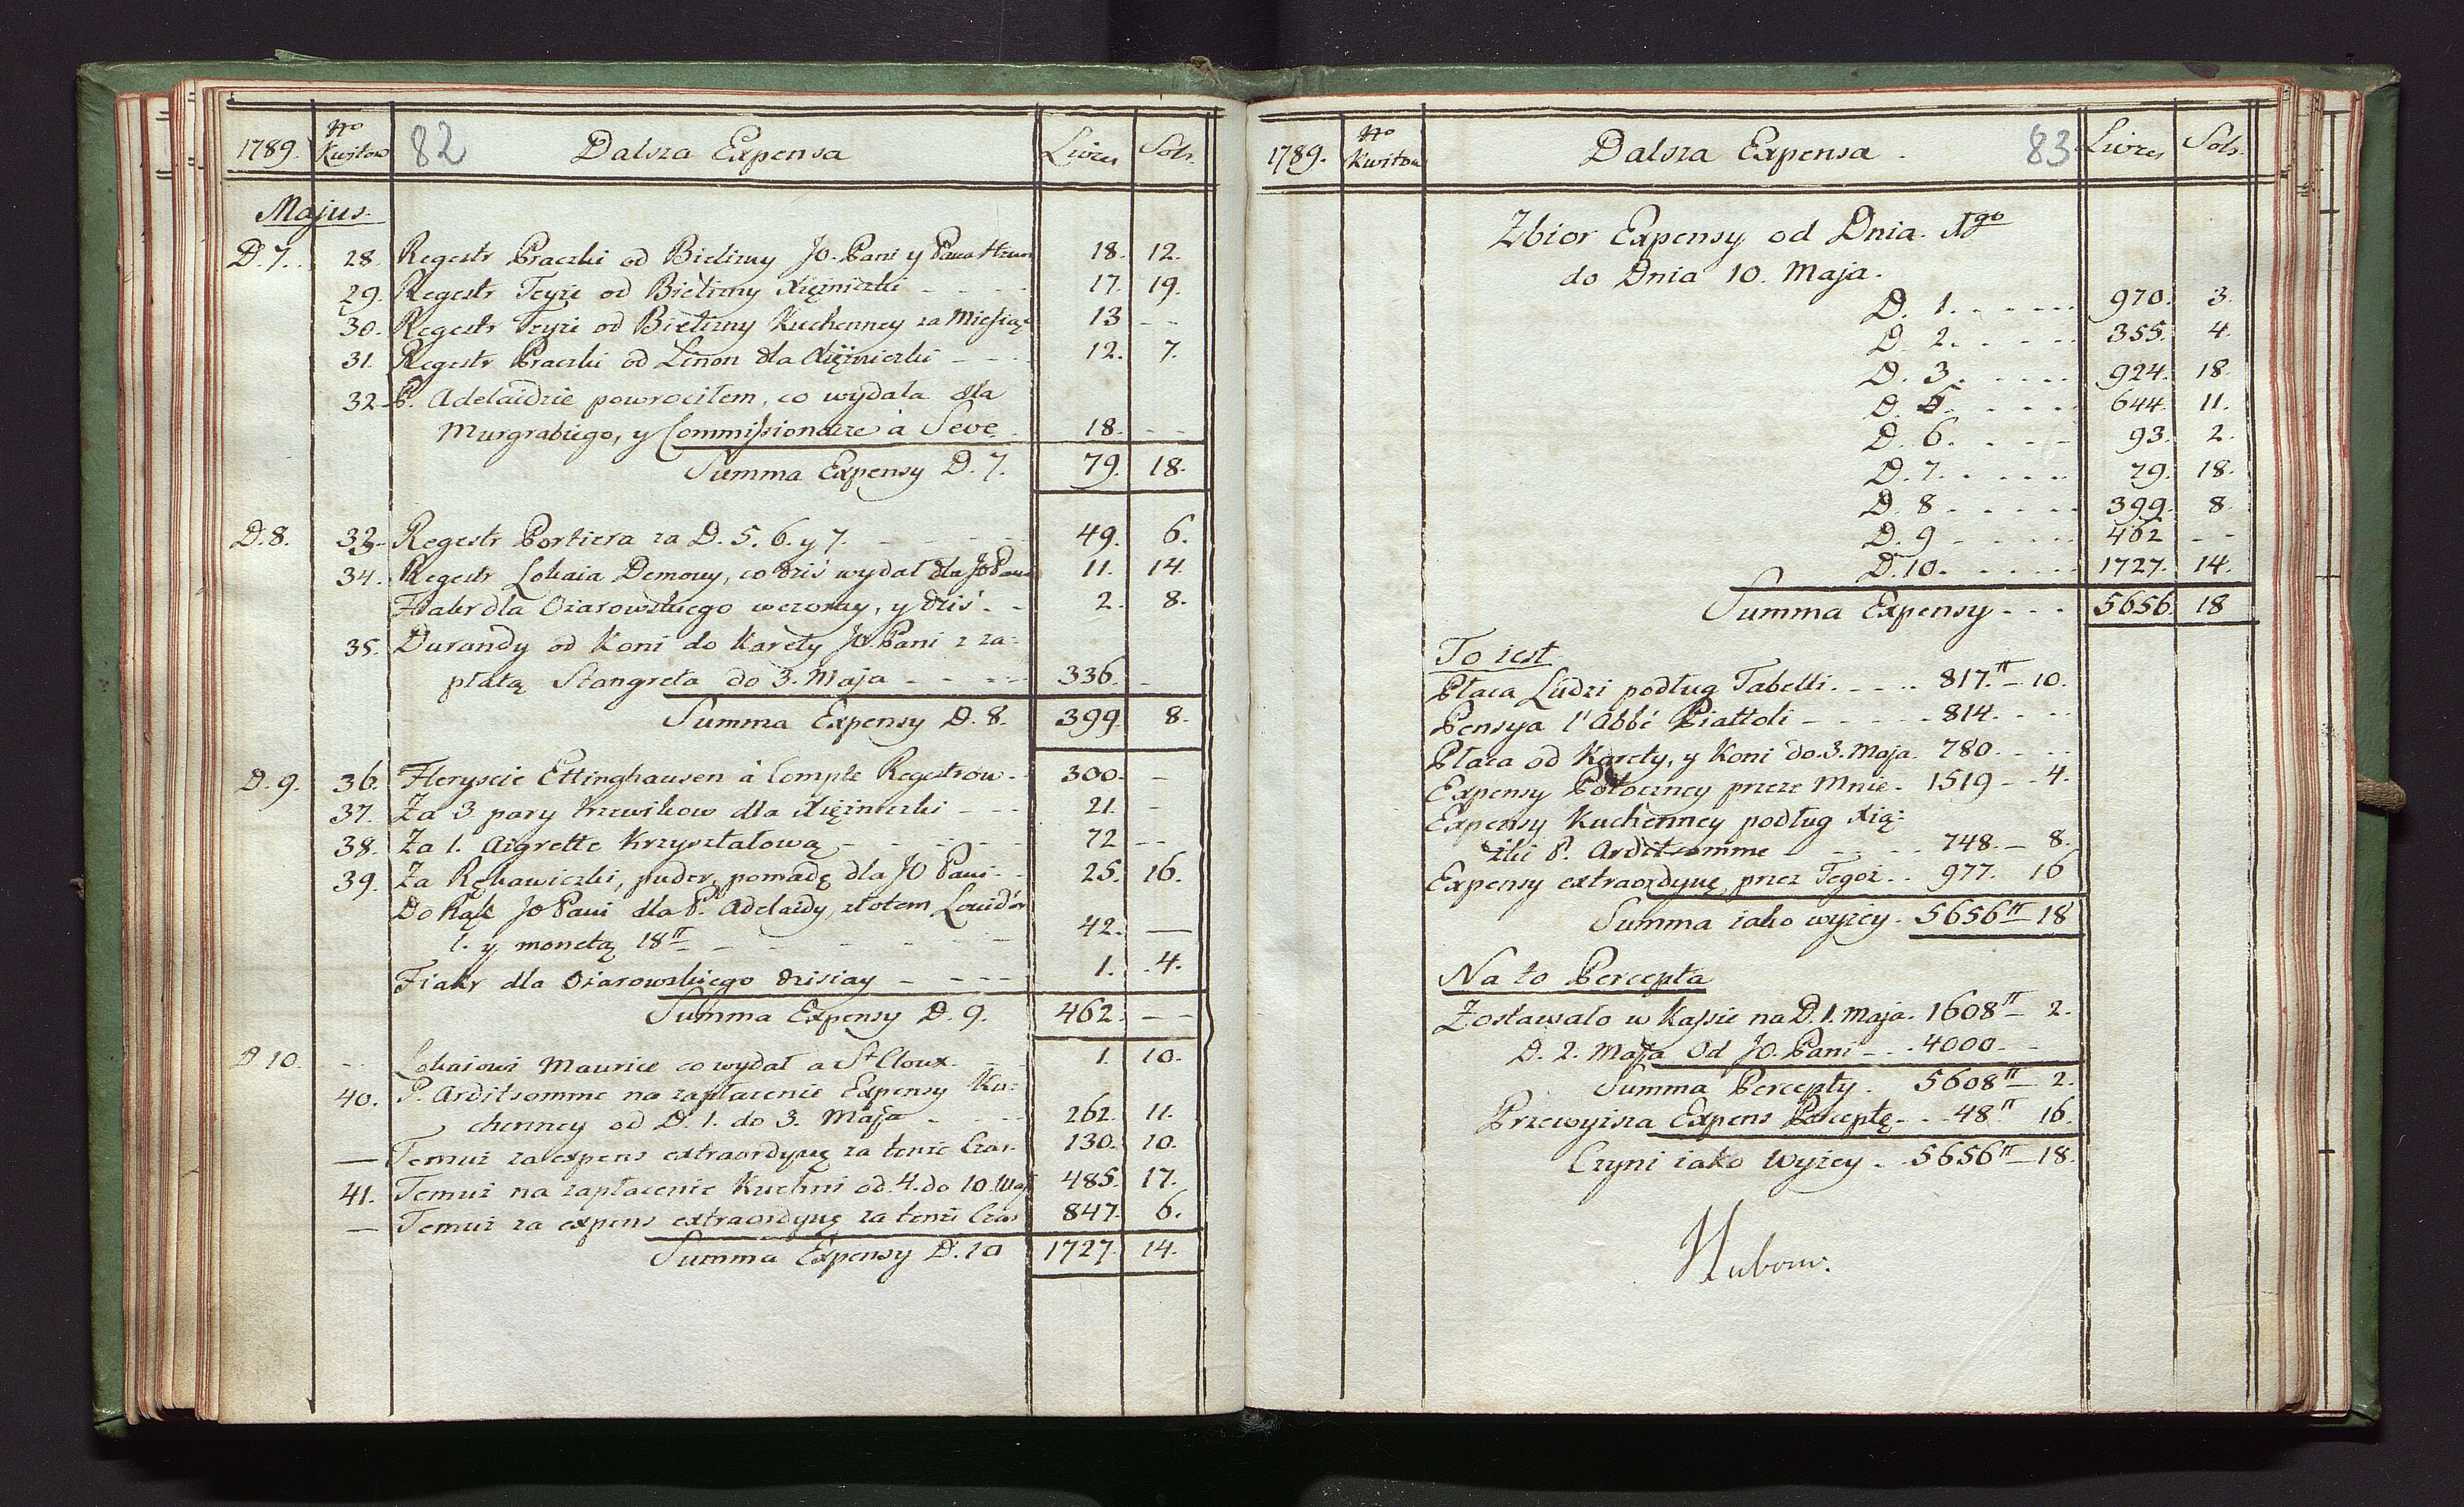 1789. No Kwitow 82 Dalsza Expensa Livres Sols.
Majus.
D. 7. 28. Regestr Praczki od Bielizny JO. Pani y Pana 18. 12.
29. Regestr Teyże od Bielizny Xiężniczki - - - 17. 19.
30. Regestr Teyże od Bielizny Kuchenney za Miesiąc 13 - -
31. Regestr Praczki od Linon dla Xiężniczki - - - 12. 7.
32. P. Adelaidzie powrociłem, co wydała dla
Murgrabiego, y Commissionaire à Seve 18. - -
Summa Expensy D. 7. 79. 18.
D. 8. 33. Regestr Portiera za D. 5. 6. y 7. - - - 49. 6.
34. Regestr Lokaia Demouy, co dziś wydał dla JO Pani 11. 14.
Fiakr dla Ożarowskiego wczoray, y dziś - - 2. 8.
35. Durandy od Koni do Karety JO. Pani z za-
płatą Stangreta do 3. Maja - - - 336. -
Summa Expensy D. 8. 399. 8.
D. 9. 36. Fleryscie Ettinghausen à Compte Regestrow - 300. -
37. Za 3 pary trzewikow dla Xiężniczki - - - 21. -
38. Za 1. Aigrette Krzyształową - - - 72 - -
39. Za Rękawiczki, puder, pomadę dla JO Pani - 25. 16.
Do Rąk JO Pani dla P. Adelaidy, złotem Louid'or
1. y monetą 18 tt - - - 42. —
Fiakr dla Ożarowskiego dzisiay - - - 1. 4.
Summa Expensy D. 9. 462. - -
D. 10. - - Lokaiowi Maurice co wydał a St Cloux - 1. 10.
40. P. Arditsomme na zapłacenie Expensy Ku-
chenney od D. 1. do 3. Maja - - - 262. 11.
— Temuż za expens extraordynę za tenże Czas 130. 10.
41. Temuż na zapłacenie Kuchni od 4. do 10. Maja 485. 17.
— Temuż za expens extraordynę za tenże Czas 847. 6.
Summa Expensy D. 10 1727. 14.
1789. No Kwitow Dalsza Expensa. 83 Livres Sols.
Zbior Expensy od Dnia 1go
do Dnia 10. Maja.
D. 1. - - - 970. 3.
D. 2. - - - 355. 4.
D. 3. - - - 924. 18.
D. 5. - - - 644. 11.
D. 6. - - - 93. 2.
D. 7. - - - 79. 18.
D. 8 - - - 399. 8.
D. 9 - - - 462 - -
D. 10. - - - 1727. 14.
Summa Expensy - - - 5656. 18
To iest
Płaca Ludzi podług Tabelli - - - 817. tt - 10.
Pensya l'Abbé Piattoli - - - 814. - -
Płaca od Karety, y Koni do 3. Maja. 780. - -
Expensy Potoczney przeze Mnie - 1519 - 4.
Expensy Kuchenney podług Xią-
żki P. Arditsomme - - - 748. - 8.
Expensy extraordynę przez Tegoż - - 977. 16
Summa iako wyżey - 5656 tt - 18
Na to Percepta
Zostawało w Kassie na D. 1. Maja. 1608 tt - 2.
D. 2. Maja Od JO. Pani - - 4000. -
Summa Percepty. 5608 tt - 2.
Przewyższa Expens Perceptę - - 48 tt 16.
Czyni iako Wyżey - 5656 tt - 18.